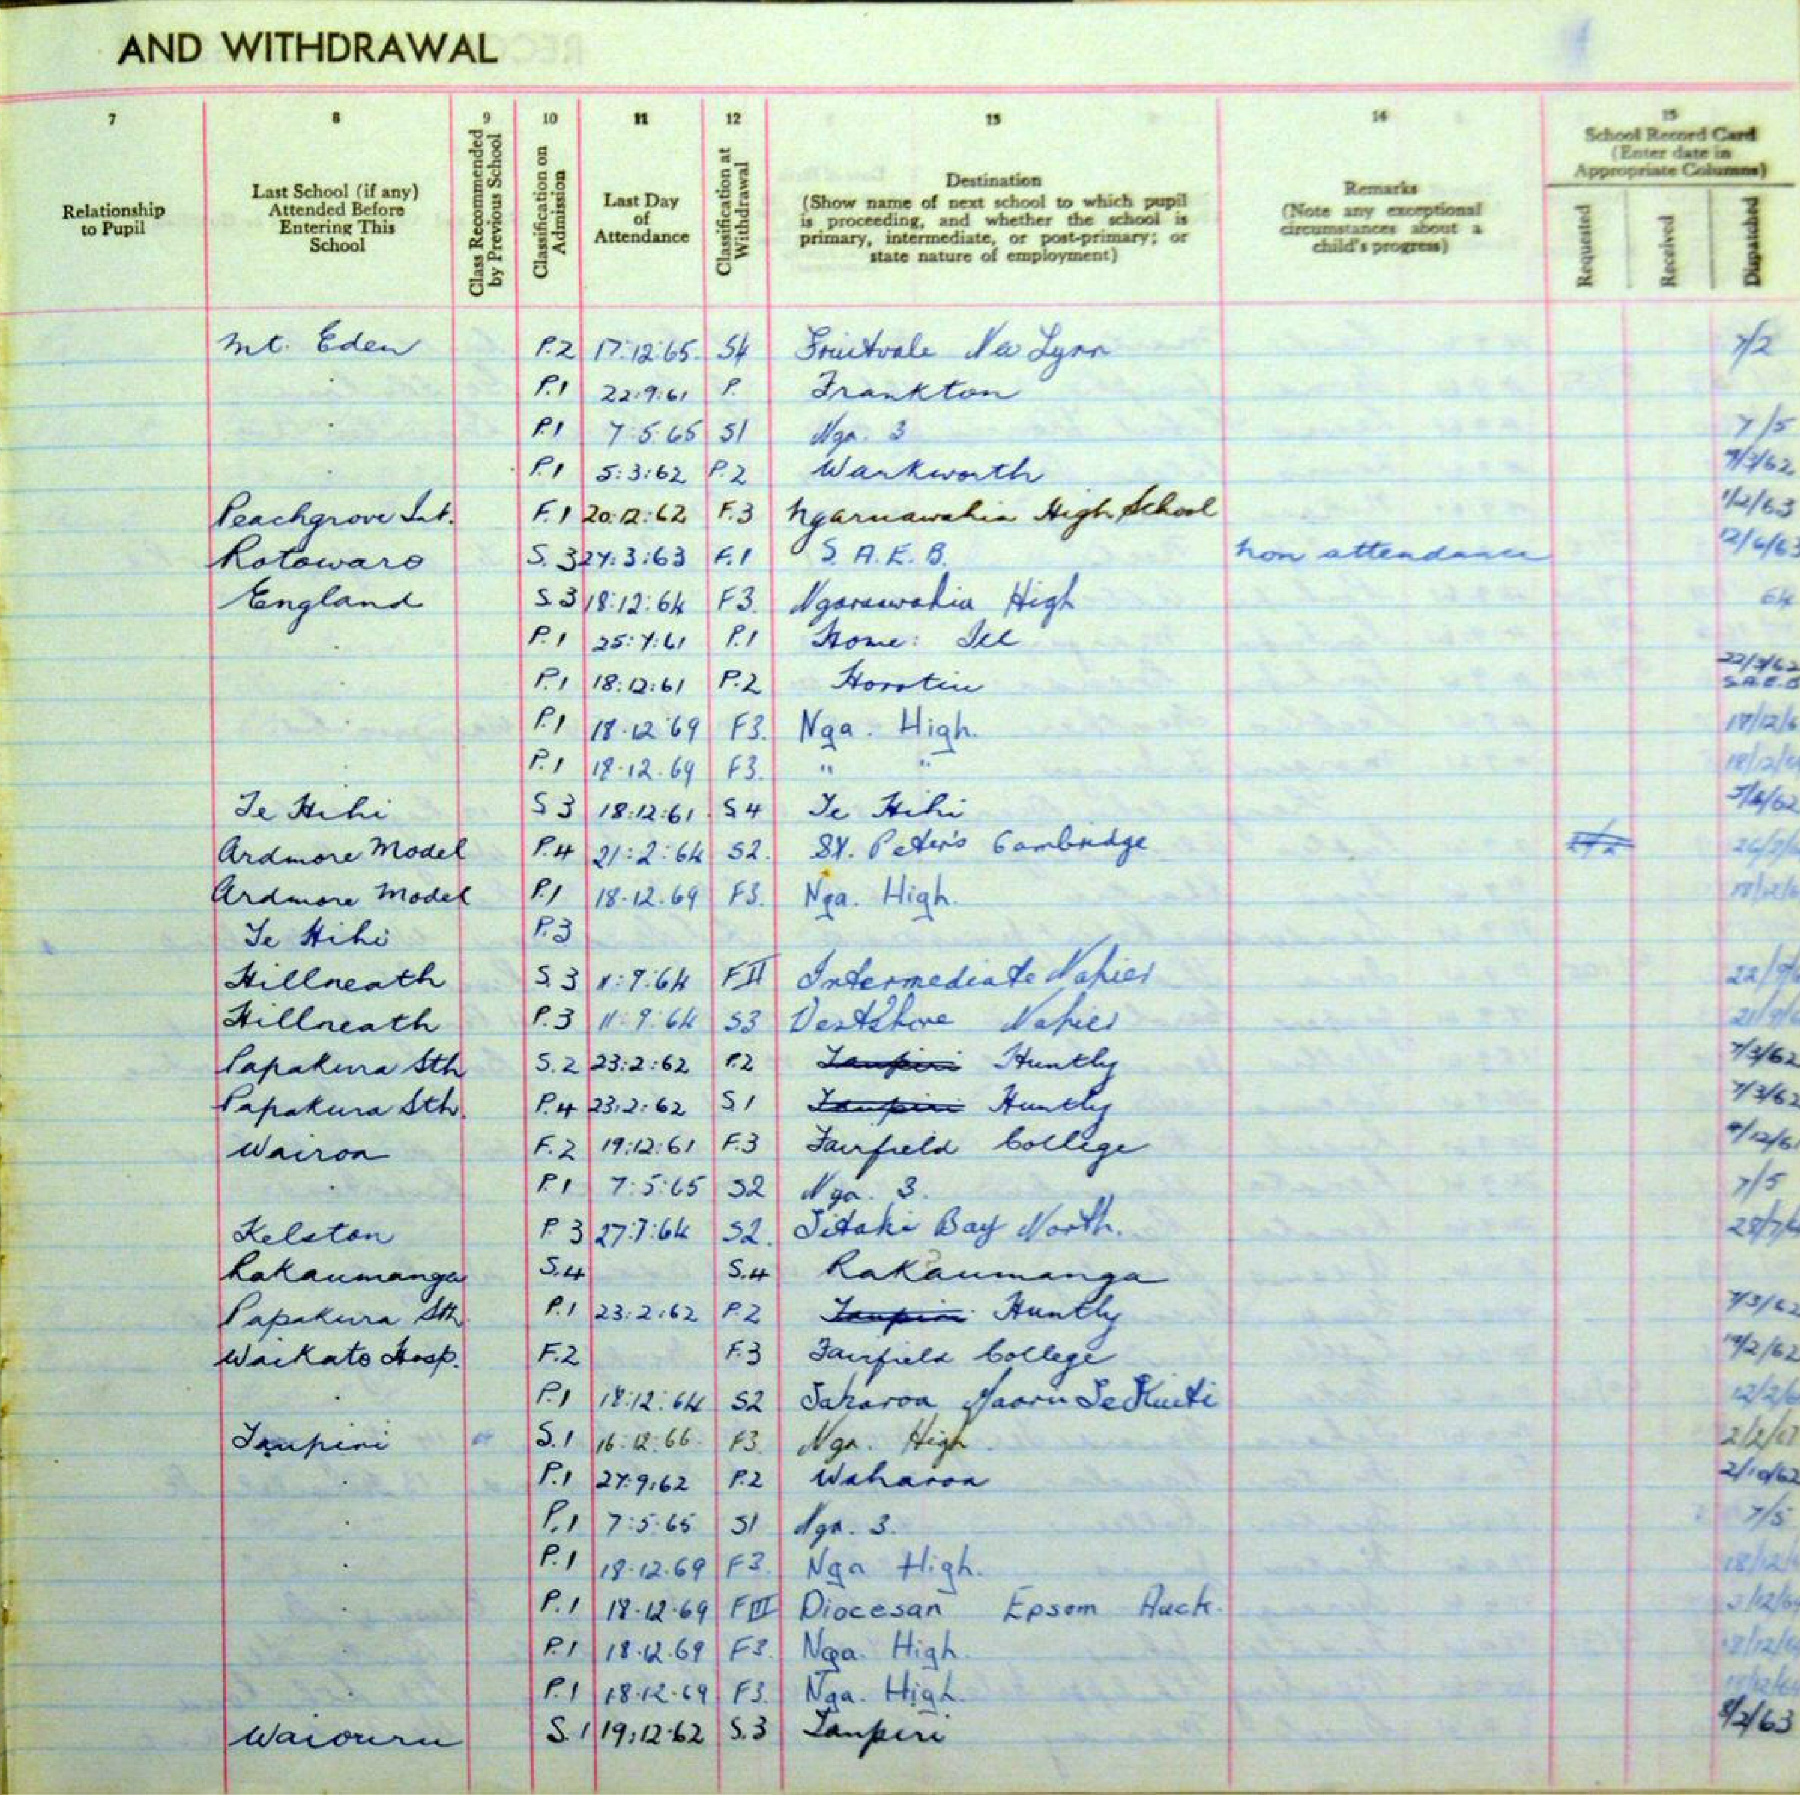 AND WITHDRAWAL
7 8 9 10 11 12 13 14 15
Relationship to Pupil
Last School (if any) Attended Before Entering This School
Class Recommended by Previous School
Classification on Admission
Last Day of Attendance
Classification at Withdrawal
Destination
(Show name of next school to which pupil is proceeding, and whether the school is primary, intermediate, or post-primary; or state nature of employment)
Remarks
(Note any exceptional circumstances about a child's progress)
School Record Card
(Enter date in Appropriate Columns)
Requested
Received
Dispatched
Mt. Eden P.2 17:12:65 S4 Fruitvale Lynn 7/2
P.1 22:9:61 P. Frankton
P.1 7:5:65 S1 Nga. 3 7/5
P.1 5:3:62 P.2 Warkworth 9/3/62
Peachgrove Int. F.1 20:12:62 F.3 Ngaruawahia High School 1/2/63
Rotowaro S.3 27:3:63 F.1 S.A.E.B. non attendance 12/6/63
England S.3 18:12:64 F3 Ngaruawahia High 64
P.1 25:7:61 P.1 Home: Ill
P.1 18:12:61 P.2 Horotiu 22/3/62 S.A.E.B
P.1 18.12.69 F3. Nga. High. 18/12/6
P.1 18.12.69 F3. " " 18/12/6
Te Hihi S3 18:12:61 S4 Te Hihi 62
Ardmore Model P.4 21:2:64 S2. St. Peter's Cambridge
Ardmore Model P.1 18.12.69 F3. Nga. High. 18/12/6
Te Hihi P.3
Hillneath S.3 11:9:64 FII Intermediate Napier 22/9/6
Hillneath P.3 11:9:64 S3 Westshore Napier 21/9/6
Papakura Sth S.2 23:2:62 P.2 Taupiri Huntly 7/3/62
Papakura Sth. P.4 23:2:62 S.1 Taupiri Huntly 7/3/62
Wairoa F.2 19:12:61 F.3 Fairfield College /12/61
P.1 7:5:65 S2 Nga. 3. 7/5
Kelston P.3 27:7:64 S2. Titahi Bay North. 28/7/6
Rakaumanga S.4 S.4 Rakaumanga
Papakura Sth P.1 23:2:62 P.2 Taupiri Huntly 7/3/62
Waikato Hosp. F.2 F.3 Fairfield College 19/2/62
P.1 18:12:64 S2 Te Kuiti 12/2/6
Taupiri S.1 16:12:66 F3 Nga. High 2/2/67
P.1 27:9:62 P.2 Waharoa 2/10/62
P.1 7:5:65 S1 Nga. 3. 7/5
P.1 18.12.69 F3. Nga High. 18/12/
P.1 18.12.69 FIII Diocesan Epsom Auck. /12/69
P.1 18.12.69 F3. Nga. High. 18/12/6
P.1 18.12.69 F3. Nga. High.
Waiouru S.1 19:12:62 S.3 Taupiri 8/2/63